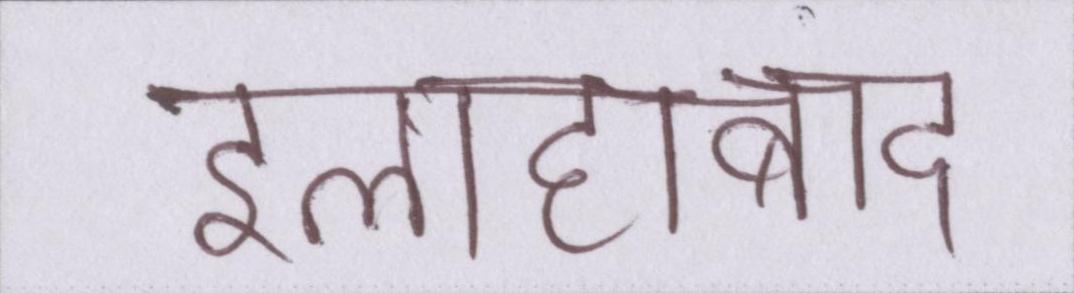 इलाहाबाद